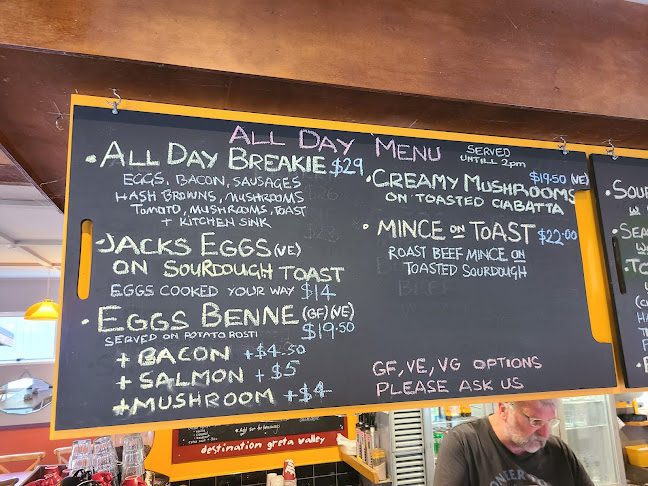 ALL DAY MENU
SERVED
UNTILL 2pm
• ALL DAY BREAKIE $29
EGGS, BACON, SAUSAGES
HASH BROWNS, MUSHROOMS
TOMATO, MUSHROOMS, TOAST
+ KITCHEN SINK
• JACKS EGGS (VE)
ON SOURDOUGH TOAST
EGGS COOKED YOUR WAY $14
• EGGS BENNE (GF)(VE)
SERVED ON POTATO ROSTI $19.50
+ BACON +$4.50
+ SALMON + $5
+ MUSHROOM + $4
$19.50 (VE)
• CREAMY MUSHROOMS
ON TOASTED CIABATTA
• MINCE ON TOAST $22.00
ROAST BEEF MINCE ON
TOASTED SOURDOUGH
GF, VE, VG OPTIONS
PLEASE ASK US
destination greta valley